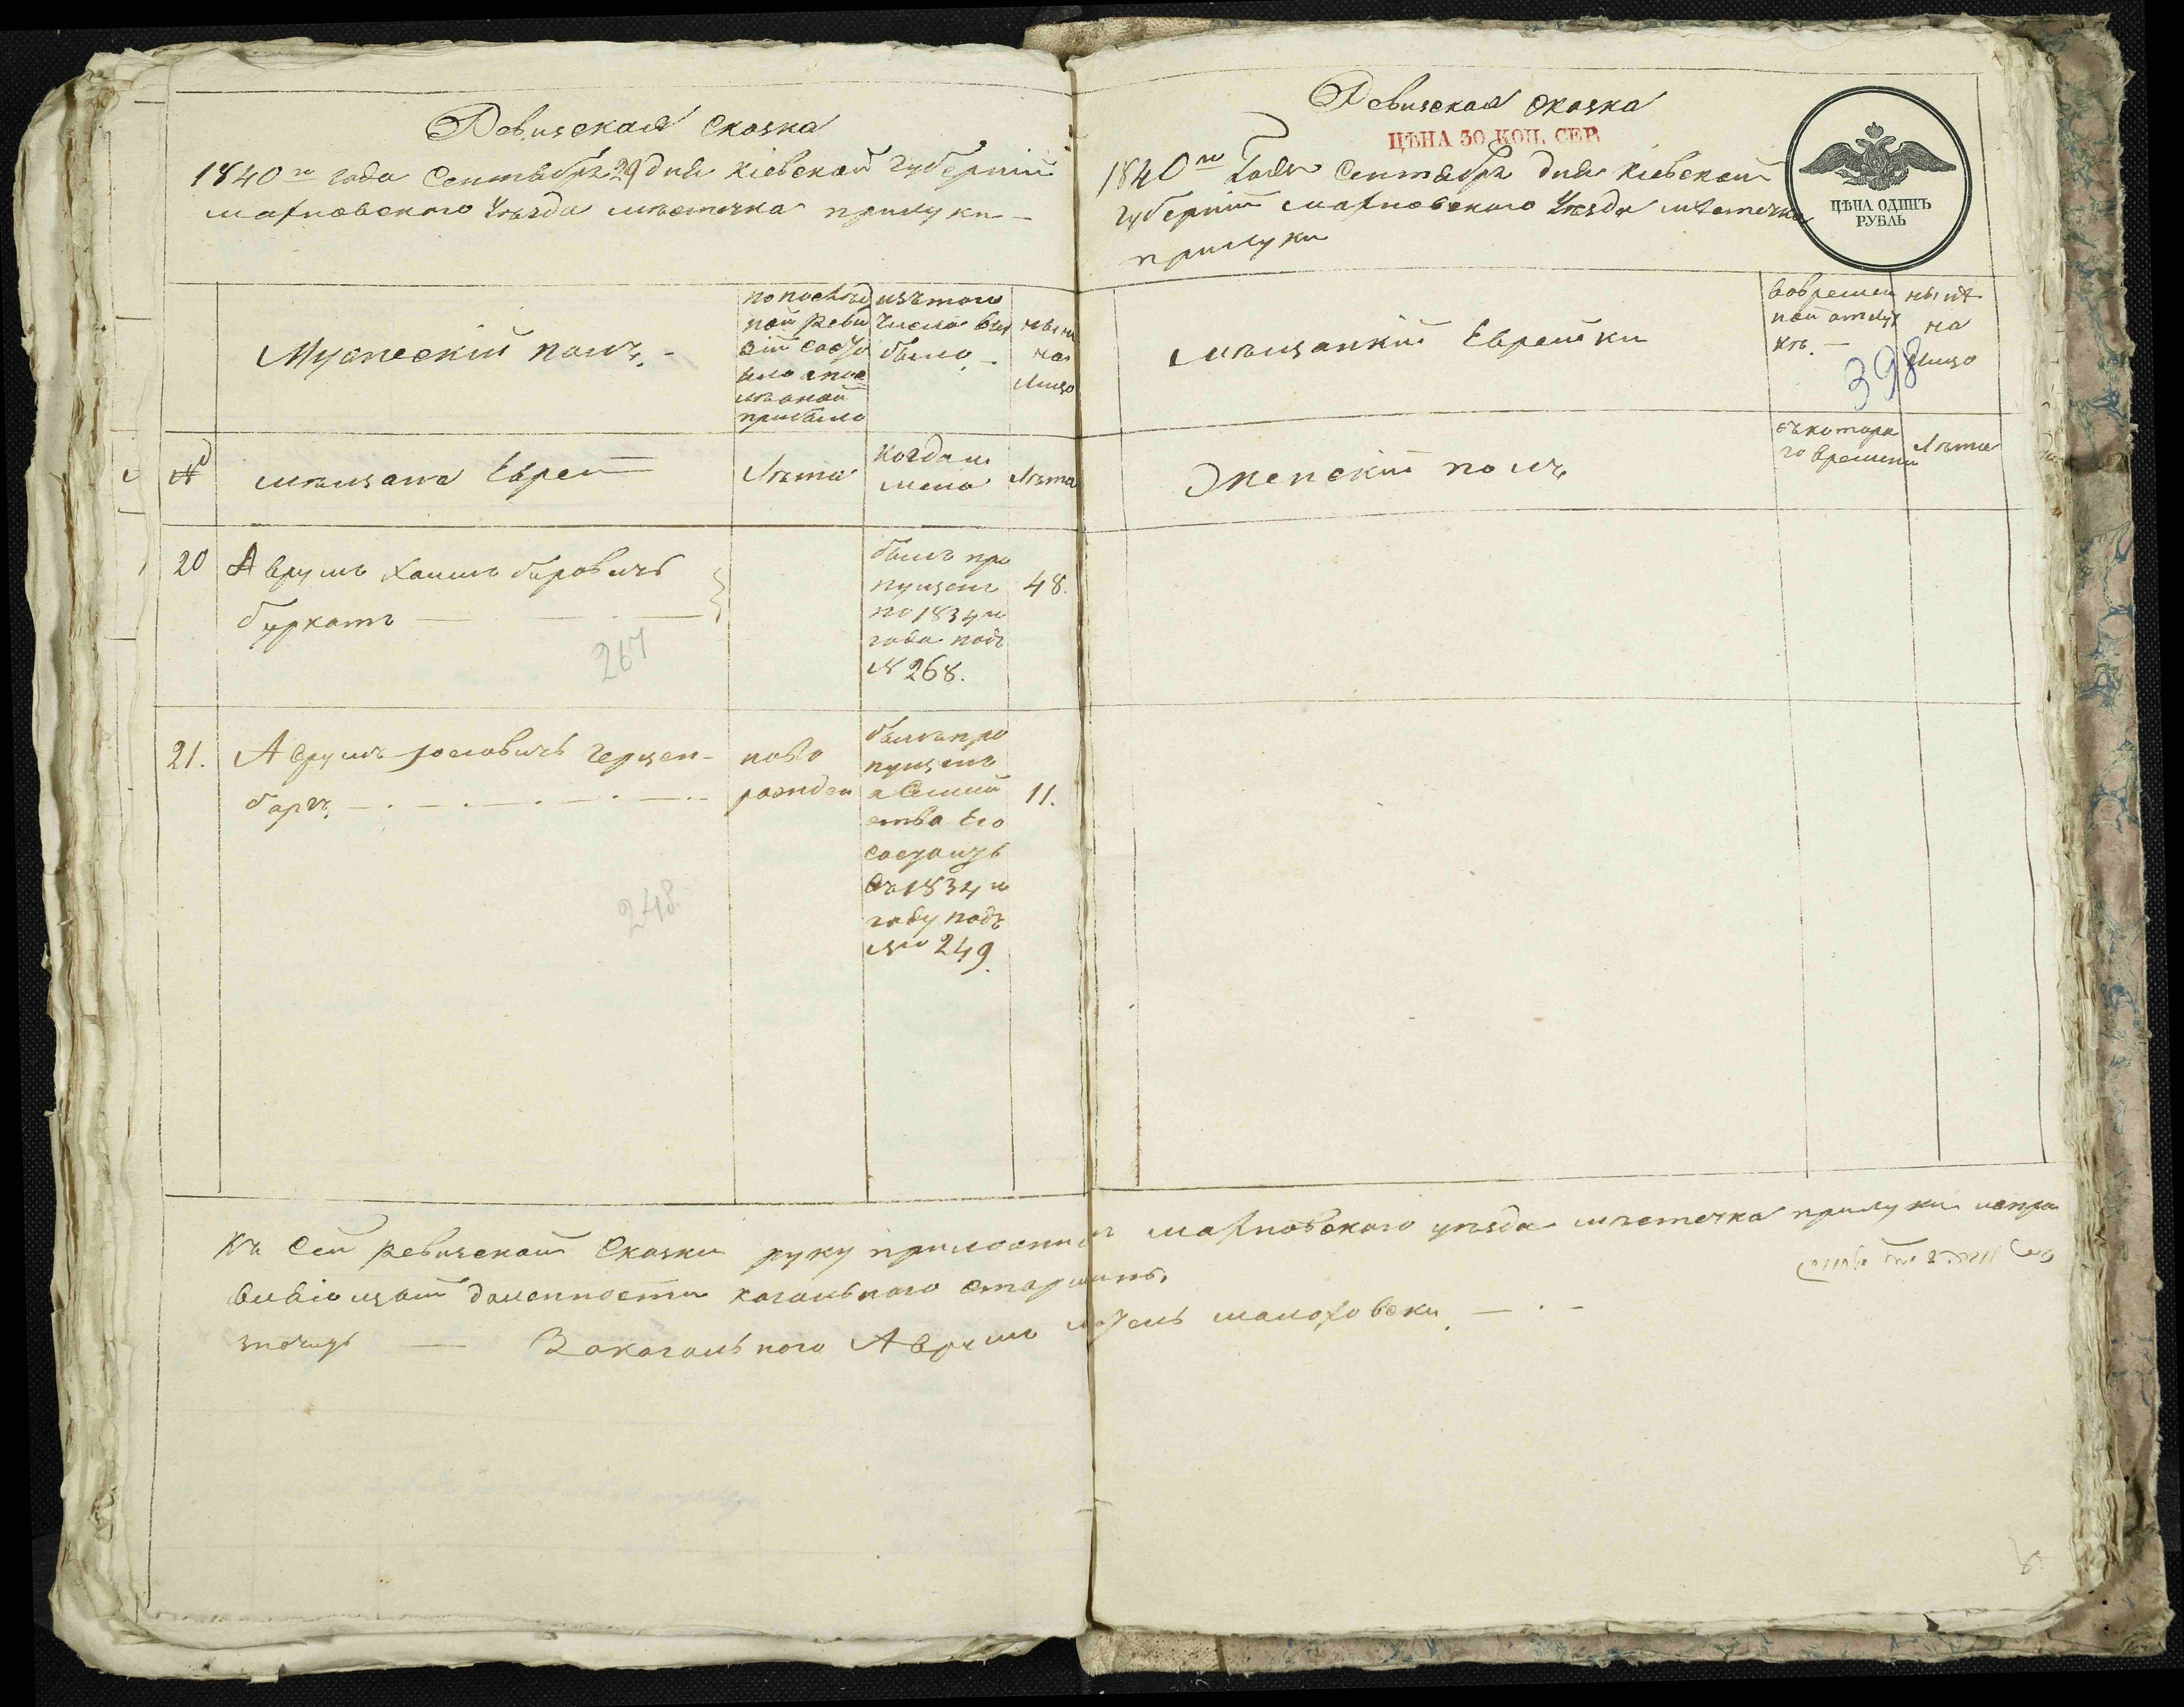 Ревизская сказка
1840го года Сентября 29 дня Кіевской губерніи
махновского Уѣзда мѣстечка прилуки
Мужескій полъ.
по послѣд
ней реви
зіи состо
яло и пос
лѣ оной
прибыло
изъ того
числа вы
было
ныне
на
лицо
№
мѣщане Евреи
Лѣта
когда и
мено
Лѣта
20
Аврумъ Хаимъ беровичъ
буркатъ
былъ про
пущенъ
по 1834му
года подъ
№ 268.
48.
267
21.
Аврумъ Іосiовичъ герцен-
баръ
ново
рожден
былъ про
пущенъ
а
ства Его
состоитъ
въ 1834м
году подъ
№ 249.
11.
248
Ревизская сказка
ЦѢНА 30 КОП. СЕР.
1840го Года Сентября дня Кіевской
губерніи махновского Уѣзда мѣстечка
прилуки
ЦѢНА ОДИНЪ
РУБЛЬ
мѣщанкій Еврейки
вовремен
ной отлуч
кѣ.
нынѣ
на
лицо
398
Женскій полъ
съкотора
го времени
Лѣта
Къ сей ревизской Сказки руку приложилъ махновского уѣзда мѣстечка прилуки испра
вляющей должности кагального старшины
Закагального Аврумъ малаховски